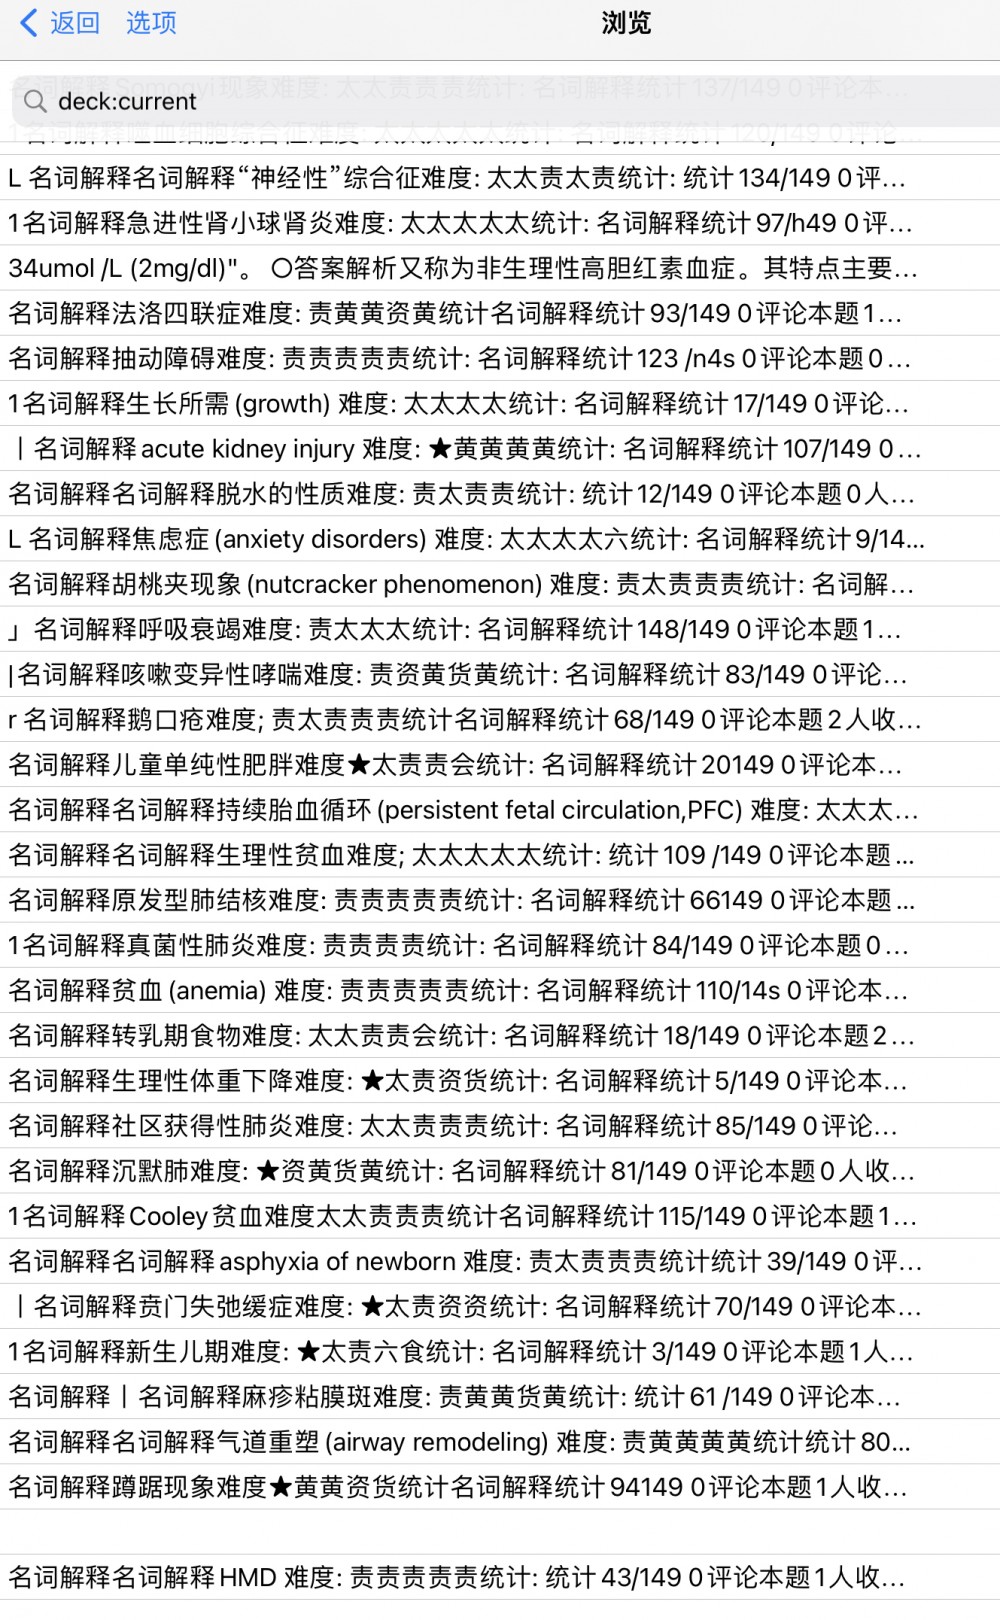 返回 选项 浏览
名词解释Somogyi现象难度: 太太责责责统计: 名词解释统计137/149 0评论本…
deck:current
1名词解释噬血细胞综合征难度: 太太太太太统计: 名词解释统计120/149 0评论…
L 名词解释名词解释“神经性”综合征难度: 太太责太责统计: 统计134/149 0评…
1名词解释急进性肾小球肾炎难度: 太太太太太统计: 名词解释统计97/h49 0评…
34umol /L (2mg/dl)"。 〇答案解析又称为非生理性高胆红素血症。其特点主要…
名词解释法洛四联症难度: 责黄黄资黄统计名词解释统计93/149 0评论本题1…
名词解释抽动障碍难度: 责责责责责统计: 名词解释统计123 /n4s 0评论本题0…
1名词解释生长所需 (growth) 难度: 太太太太统计: 名词解释统计17/149 0评论…
丨名词解释acute kidney injury 难度: ★黄黄黄黄统计: 名词解释统计107/149 0…
名词解释名词解释脱水的性质难度: 责太责责统计: 统计12/149 0评论本题0人…
L 名词解释焦虑症 (anxiety disorders) 难度: 太太太太六统计: 名词解释统计9/14…
名词解释胡桃夹现象 (nutcracker phenomenon) 难度: 责太责责责统计: 名词解…
」名词解释呼吸衰竭难度: 责太太太统计: 名词解释统计148/149 0评论本题1…
|名词解释咳嗽变异性哮喘难度: 责资黄货黄统计: 名词解释统计83/149 0评论…
r 名词解释鹅口疮难度; 责太责责责统计名词解释统计68/149 0评论本题2人收…
名词解释儿童单纯性肥胖难度★太责责会统计: 名词解释统计20149 0评论本…
名词解释名词解释持续胎血循环 (persistent fetal circulation,PFC) 难度: 太太太…
名词解释名词解释生理性贫血难度; 太太太太太统计: 统计109 /149 0评论本题…
名词解释原发型肺结核难度: 责责责责责统计: 名词解释统计66149 0评论本题…
1名词解释真菌性肺炎难度: 责责责责统计: 名词解释统计84/149 0评论本题0…
名词解释贫血 (anemia) 难度: 责责责责责统计: 名词解释统计110/14s 0评论本…
名词解释转乳期食物难度: 太太责责会统计: 名词解释统计18/149 0评论本题2…
名词解释生理性体重下降难度: ★太责资货统计: 名词解释统计5/149 0评论本…
名词解释社区获得性肺炎难度: 太太责责责统计: 名词解释统计85/149 0评论…
名词解释沉默肺难度: ★资黄货黄统计: 名词解释统计81/149 0评论本题0人收…
1名词解释Cooley贫血难度太太责责责统计名词解释统计115/149 0评论本题1…
名词解释名词解释asphyxia of newborn 难度: 责太责责责统计统计39/149 0评…
丨名词解释贲门失弛缓症难度: ★太责资资统计: 名词解释统计70/149 0评论本…
1名词解释新生儿期难度: ★太责六食统计: 名词解释统计3/149 0评论本题1人…
名词解释丨名词解释麻疹粘膜斑难度: 责黄黄货黄统计: 统计61 /149 0评论本…
名词解释名词解释气道重塑 (airway remodeling) 难度: 责黄黄黄黄统计统计80…
名词解释蹲踞现象难度★黄黄资货统计名词解释统计94149 0评论本题1人收…
名词解释名词解释HMD 难度: 责责责责责统计: 统计43/149 0评论本题1人收…